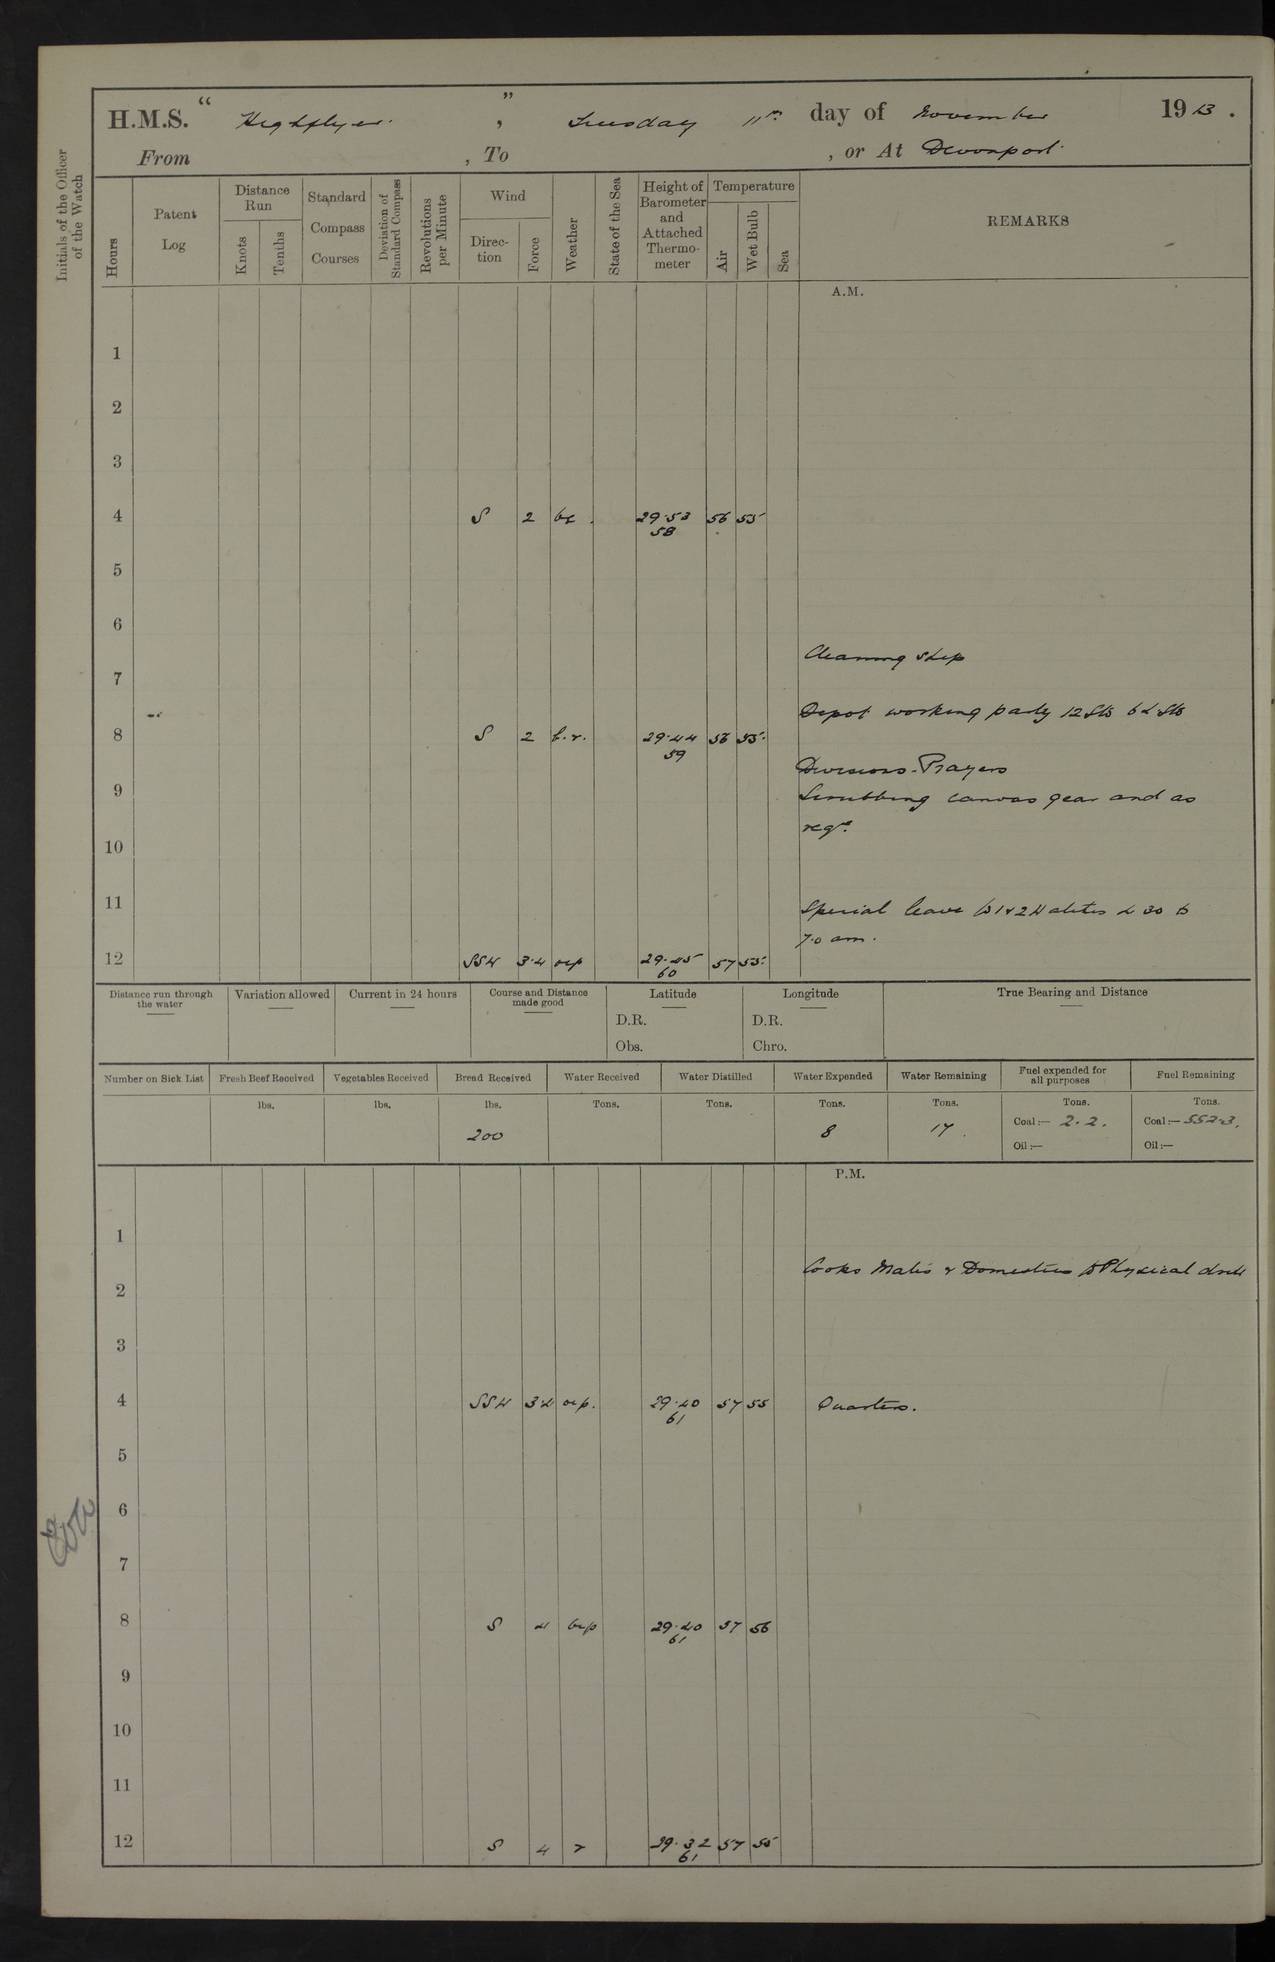 H.M.S. " Highflyer ", Tuesday 11th day of November 1913.
From , To , or At Devonport
Initials of the Officer of the Watch
Hours
Patent Log
Distance Run
Knots
Tenths
Standard Compass Courses
Deviation of Standard Compass
Revolutions per Minute
Wind
Direction
Force
Weather
State of the Sea
Height of Barometer and Attached Thermometer
Temperature
Air
Wet Bulb
Sea
REMARKS
A.M.
1
2
3
4 S 2 bc 29.53 58 56 55
5
6
Cleaning ship
7
Depot working party 12 Sto 6 L Sto
8 S 2 b.r. 29.44 59 56 55
Divisions. Prayers
9 Scrubbing canvas gear and as
reqd.
10
11 Special leave to 1 & 2 W 4.30 to
7.0 am.
12 SSW 3.4 ocp 29.45 60 57 55
Distance run through the water
Variation allowed
Current in 24 hours
Course and Distance made good
Latitude
D.R.
Obs.
Longitude
D.R.
Chro.
True Bearing and Distance
Number on Sick List
Fresh Beef Received lbs.
Vegetables Received lbs.
Bread Received lbs. 200
Water Received Tons.
Water Distilled Tons.
Water Expended Tons. 8
Water Remaining Tons. 17
Fuel expended for all purposes Tons.
Coal:— 2.2.
Oil:—
Fuel Remaining Tons.
Coal:— 552.3.
Oil:—
P.M.
1
Cooks Mates & Domestics to Physical drill
2
3
4 SSW 3.4 ocp. 29.40 61 57 55 Quarters.
5
6
7
8 S 4 bcp 29.40 61 57 56
9
10
11
12 S 4 r 29.32 61 57 55